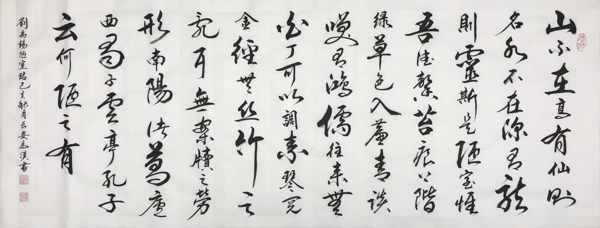 山不在高有仙則
名水不在深有龍
則靈斯是陋室惟
吾德馨苔痕上階
綠草色入簾青談
笑有鴻儒往來無
白丁可以調素琴閱
金經無丝竹之
亂耳無案牘之勞
形南陽諸葛廬
西蜀子雲亭孔子
云何陋之有
劉禹錫陋室銘己亥月長安漢書